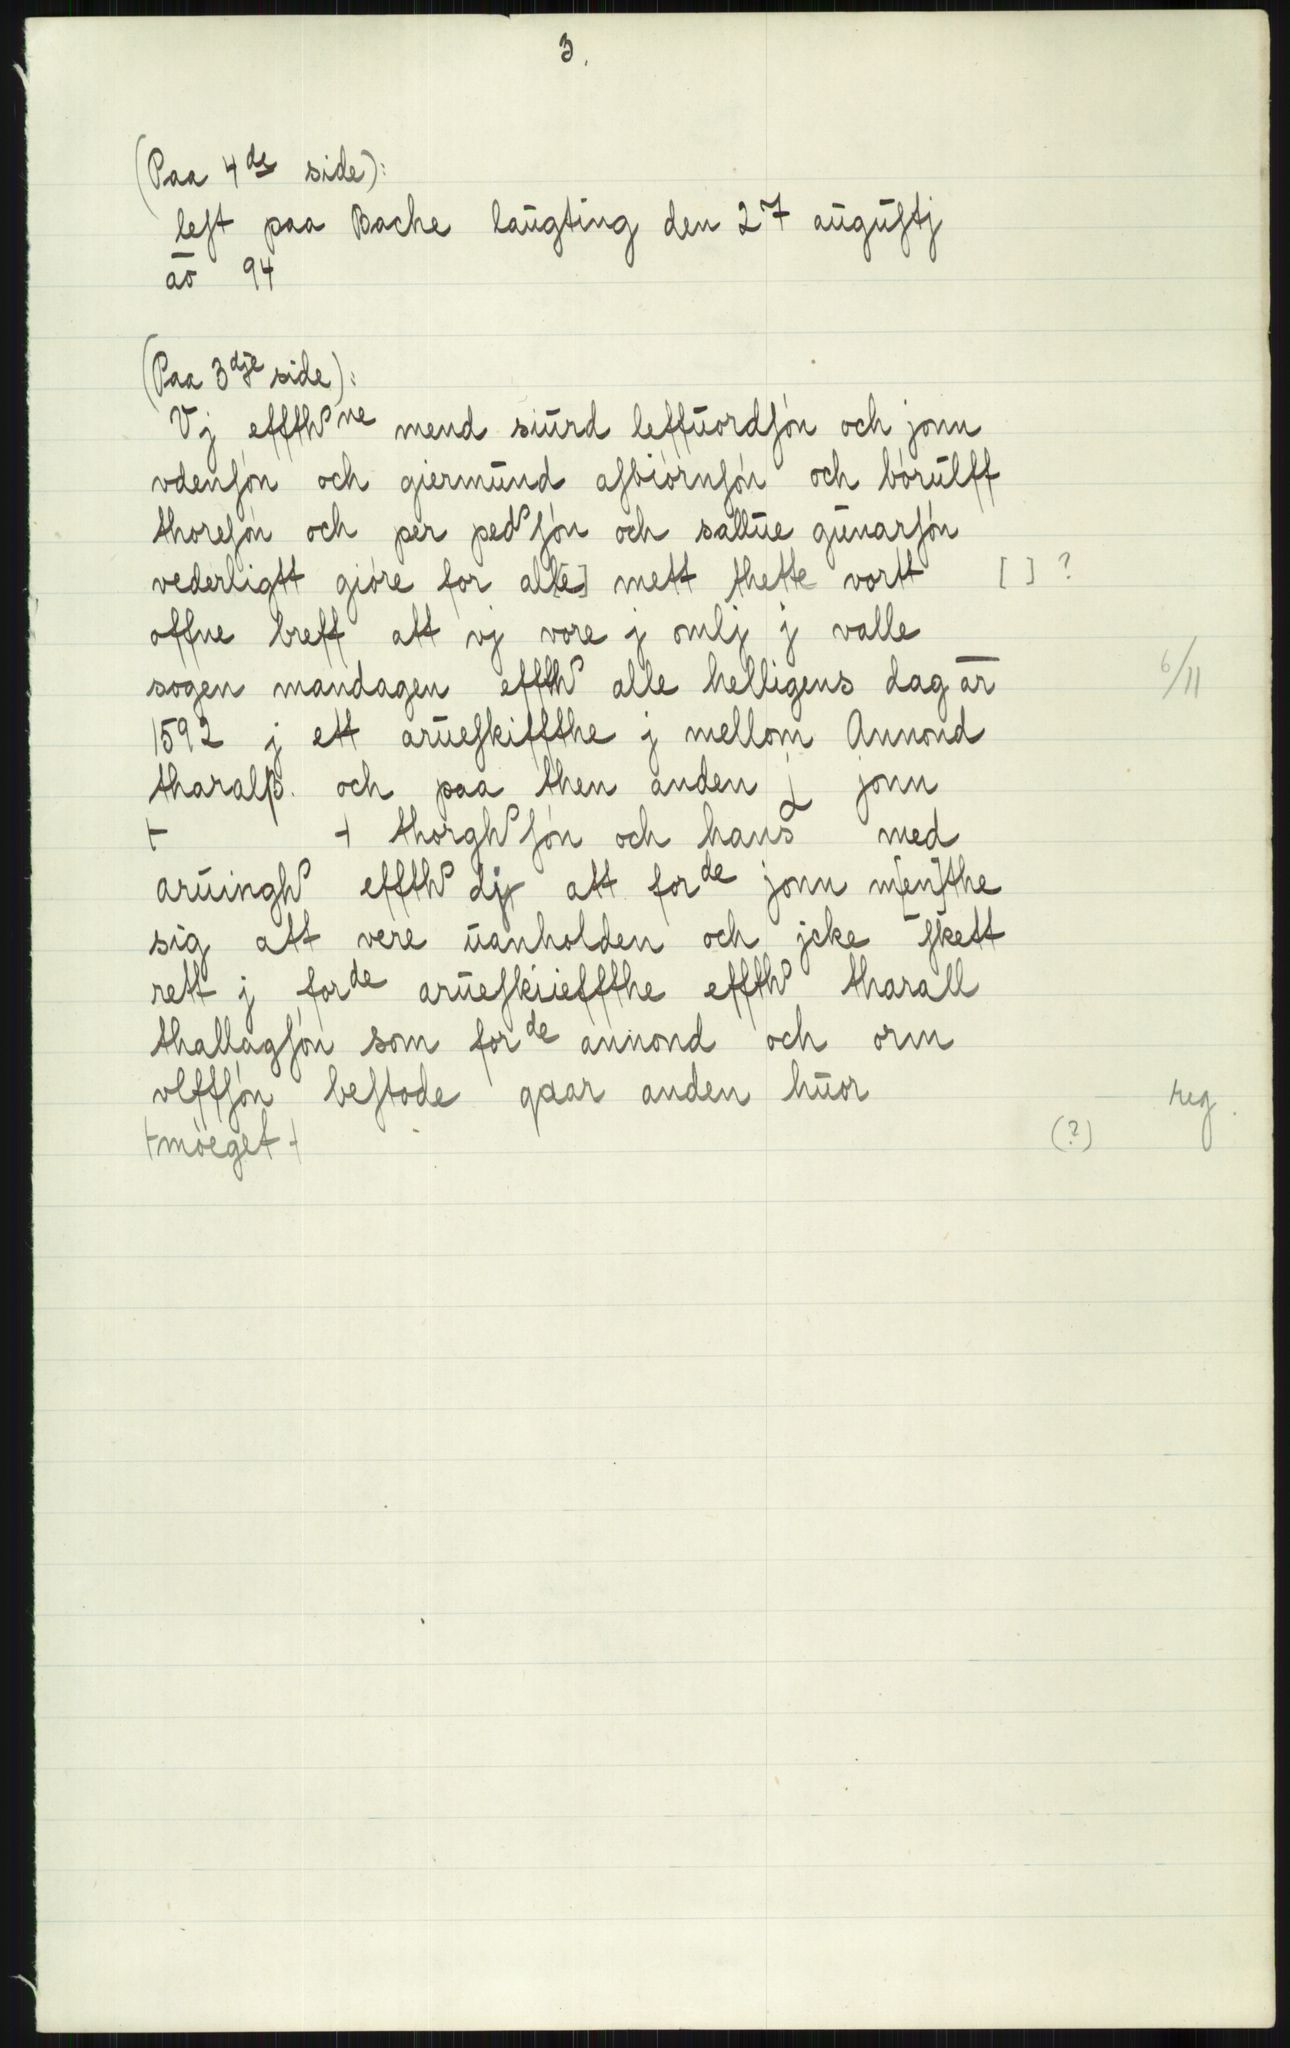 3.
(Paa 4de side):
leſt paa Bache laugting den 27 auguſtj
ar 94
(Paa 3dje side):
Vj effthne mend siurd leffuordſón och jonn
vdenſón och giermund aſbiórnſón och bórulff
thoreſón och per pedſón och sallue gunarſón
vederligtt gióre for all[e] mett thette vortt [ ] ?
offne breff att vj vore j omlj j valle
sogen mandagen effth alle helligens dag ar 6/11
1592 j ett arueſkiffthe j mellom Annond
tharalſß. och paa then anden j jonn
thorghſón och hans med
aruingh effth dj att forde jonn m[en]the
sig att vere uanholden och jcke ſkett
rett j forde arueſkiieffthe effth tharall
thallagſón som forde annond och orm
vlffſón beſtode qxar anden huor reg.
möeget (?)